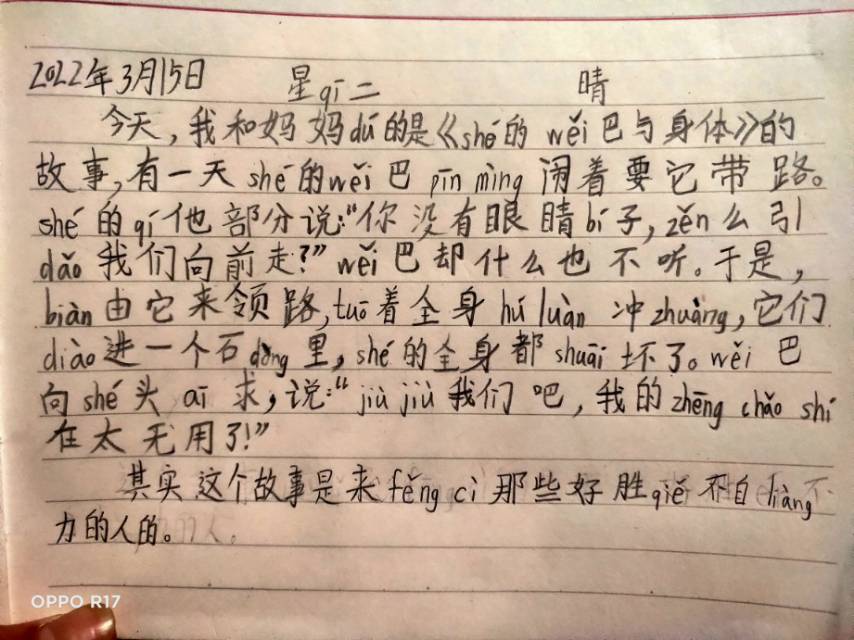 2022年3月15日 星qī二 晴
今天，我和妈妈dú的是《shé的wěi巴与身体》的
故事，有一天shé的wěi巴pīn mìng闹着要它带路。
shé的qí他部分说：“你没有眼睛bí子，zěn么引
dǎo我们向前走？”wěi巴却什么也不听。于是，
biàn由它来领路，tuō着全身hú luàn冲zhuàng，它们
diào进一个石dòng里，shé的全身都shuāi坏了。wěi巴
向shé头āi求，说：“jiù jiù我们吧，我的zhēng chǎo shí
在太无用了！”
其实这个故事是来fěng cì那些好胜qiě不自liàng
力的人的。
OPPO R17